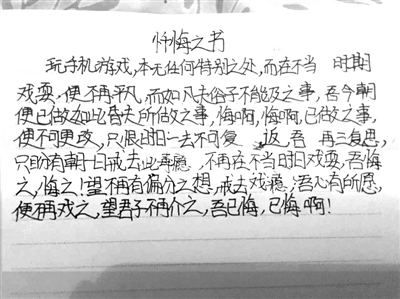 忏悔之书
玩手机游戏,本无任何特别之处,而在不当 时期
戏耍,便不再平凡,而如凡夫俗子不能及之事,吾今朝
便已做如此昏夫所做之事,悔啊,悔啊,已做之事,
便不可更改,只恨时日一去不可复 返,吾 再三复思,
只盼有朝一日戒去此再瘾,不再在不当时日戏耍,吾悔
之,悔之!望不再有偏分之想,戒去戏瘾,吾心有所愿,
便不再戏之,望君子不再介之,吾已悔,已悔啊!